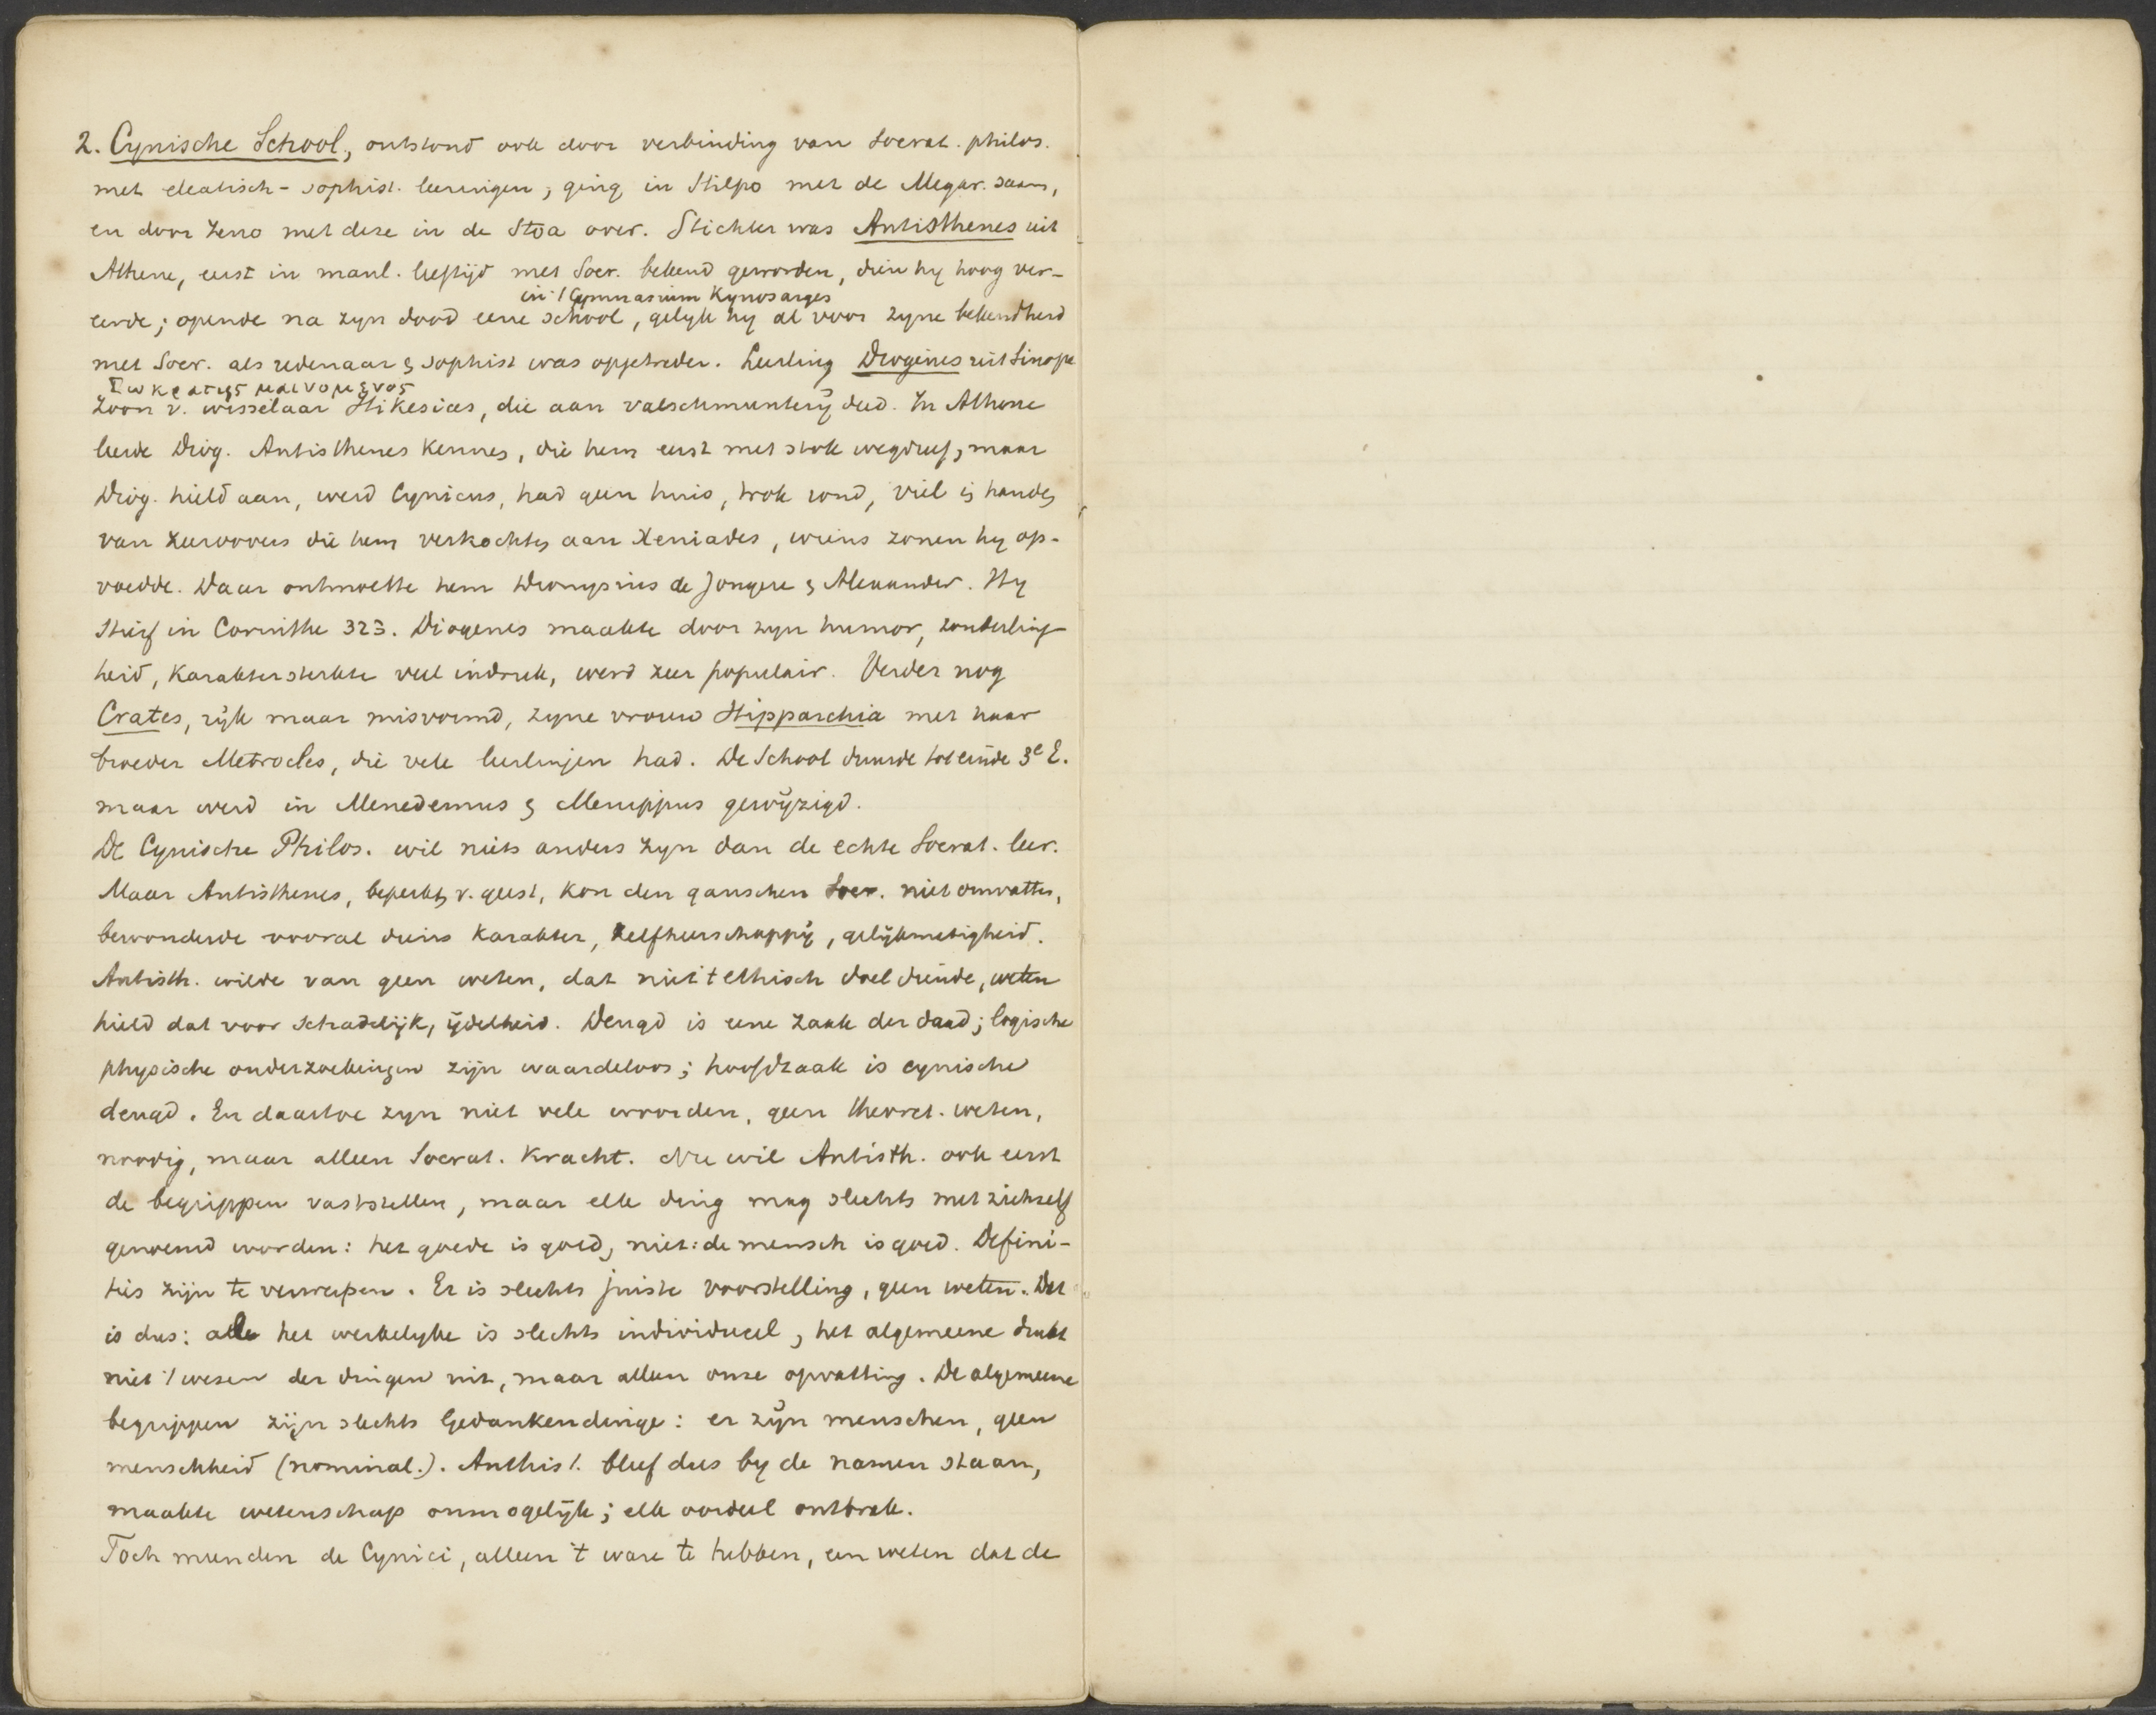 2. Cynische School, ontstond ook door verbinding van Socrat. philos.
met eleatisch-sophist. leeringen; ging in Stilpo met de Megar. saam,
en door Zeno met deze in de Stoa over. Stichter was Antisthenes uit
Athene, eerst in manl. leeftijd met Socr. bekend geworden, dien hy hoog ver-
in 't Gymnasium Kynosarges
eerde; opende na zyn dood eene school, gelyk hy al voor zyne bekendheid
met Socr. als redenaar & sophist was opgetreden. Leerling Diogenes uit Sinope
Σωκρατης μαινομενος
zoon v. wisselaar Hikesias, die aan valschmunterÿ deed. In Athene
leerde Diog. Antisthenes kennen, die hem eerst met stok wegdreef, maar
Diog. hield aan, werd Cynicus, had geen huis, trok rond, viel in handen
van zeeroovers die hem verkochten aan Xeniades, wiens zonen hy op-
voedde. Daar ontmoette hem Dionysius de Jongere & Alexander. Hy
stierf in Corinthe 323. Diogenes maakte door zyn humor, zonderling-
heid, karaktersterkte veel indruk, werd zeer populair. Verder nog
Crates, rijk maar misvormd, zyne vrouw Hipparchia met haar
broeder Metrocles, die vele leerlingen had. De School duurde tot einde 3e E.
maar werd in Menedemus & Menippus gewÿzigd.
De Cynische Philos. wil niets anders zyn dan de echte Socrat. leer.
Maar Antisthenes, beperkt v. geest, kon den ganschen Socr. niet omvatten,
bewonderde vooral diens karakter, zelfheerschappÿ, gelÿkmatigheid.
Antisth. wilde van geen weten, dat niet 't ethisch doel diende, weten
hield dat voor schadelijk, ijdelheid. Deugd is eene zaak der daad; logische
physische onderzoekingen zijn waardeloos; hoofdzaak is cynische
deugd. En daartoe zyn niet vele woorden, geen theoret. weten,
noodig, maar alleen Socrat. kracht. Nu wil Antisth. ook eerst
de begrippen vaststellen, maar elk ding mag slechts met zichzelf
genoemd worden: het goede is goed, niet: de mensch is goed. Defini-
ties zijn te verwerpen. Er is slechts juiste voorstelling, geen weten. Dat
is dus: alle het werkelyke is slechts individueel, het algemeene drukt
niet 't wezen der dingen uit, maar alleen onze opvatting. De algemeene
begrippen zijn slechts Gedankendinge: er zÿn menschen, geen
menschheid (nominal.). Anthist. bleef dus by de namen staan,
maakte wetenschap onmogelijk; elk oordeel ontbrak.
Toch meenden de Cynici, alleen 't ware te hebben, een weten dat de